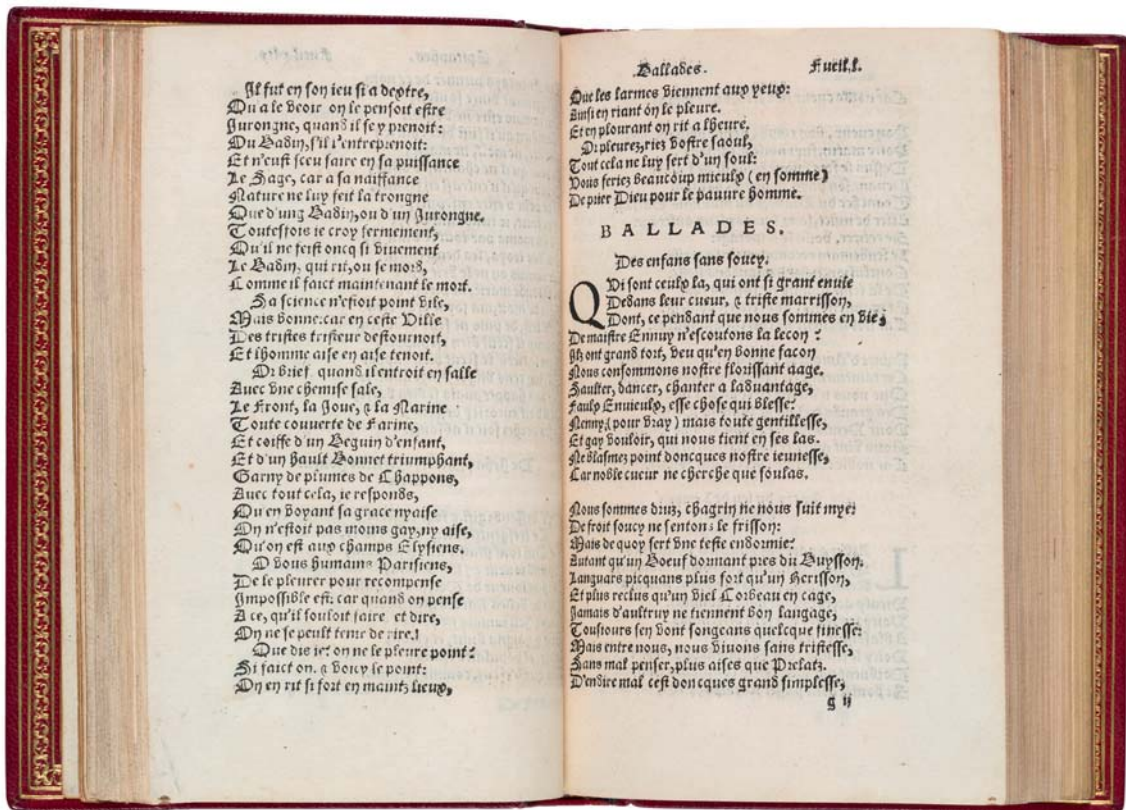 Il fut en son ieu si adextre,
Qu'a le veoir on le pensoit estre
Iurongne, quand il se y prenoit:
Ou Badin, s'il l'entreprenoit:
Et n'eust sceu faire en sa puissance
Le Sage, car a sa naissance
Nature ne luy feit la trongne
Que d'ung Badin, ou d'un Iurongne.
Toutesfois ie croy fermement,
Qu'il ne feist oncq si viuement
Le Badin, qui rit, ou se mord,
Comme il faict maintenant le mort.
Sa science n'estoit point vile,
Mais bonne: car en ceste Ville
Des tristes tristeur destournoit,
Et lhomme aise en aise tenoit.
Or brief, quand il entroit en salle
Auec vne chemise sale,
Le Front, la Ioue, & la Narine
Toute couuerte de Farine,
Et coiffe d'un Beguin d'enfant,
Et d'un hault Bonnet triumphant,
Garny de plumes de Chappons,
Auec tout cela, ie responds,
Qu'en voyant sa grace nyaise
On n'estoit pas moins gay, ny aise,
Qu'on est aux champs Elysiens.
O vous humains Parisiens,
De le pleurer pour recompense
Impossible est: car quand on pense
A ce, qu'il souloit faire, et dire,
On ne se peult tenir de rire.
Que dis ie? on ne le pleure point?
Si faict on, & voicy le point:
On en rit si fort en maintz lieux,
Ballades. Fueil.l.
Que les larmes viennent aux yeux:
Ainsi en riant on le pleure.
Et en plourant on rit a lheure.
Or pleurez, riez vostre saoul,
Tout cela ne luy sert d'un soul:
Vous feriez beaucoup mieulx (en somme)
De prier Dieu pour le pauure homme.
BALLADES.
Des enfans sans soucy.
QVi sont ceulx la, qui ont si grant enuie
Dedans leur cueur, & triste marrisson,
Dont, ce pendant que nous sommes en vie,
De maistre Ennuy n'escoutons la lecon?
Ilz ont grand tort, veu qu'en bonne facon
Nous consommons nostre florissant aage.
Saulter, dancer, chanter a laduantage,
Faulx Enuieulx, esse chose qui blesse?
Nenny (pour vray) mais toute gentillesse,
Et gay vouloir, qui nous tient en ses las.
Ne blasmez point doncques nostre ieunesse,
Car noble cueur ne cherche que soulas.
Nous sommes druz, chagrin ne nous suit mye:
De froit soucy ne sentons le frisson:
Mais de quoy sert vne teste endormie?
Autant qu'un Boeuf dormant pres du Buysson.
Languars picquans plus fort qu'un Herisson,
Et plus reclus qu'un viel Corbeau en cage,
Iamais d'aultruy ne tiennent bon langage,
Tousiours sen vont songeans quelcque finesse:
Mais entre nous, nous viuons sans tristesse,
Sans mal penser, plus aises que Prelatz.
D'en dire mal cest doncques grand simplesse,
g ij